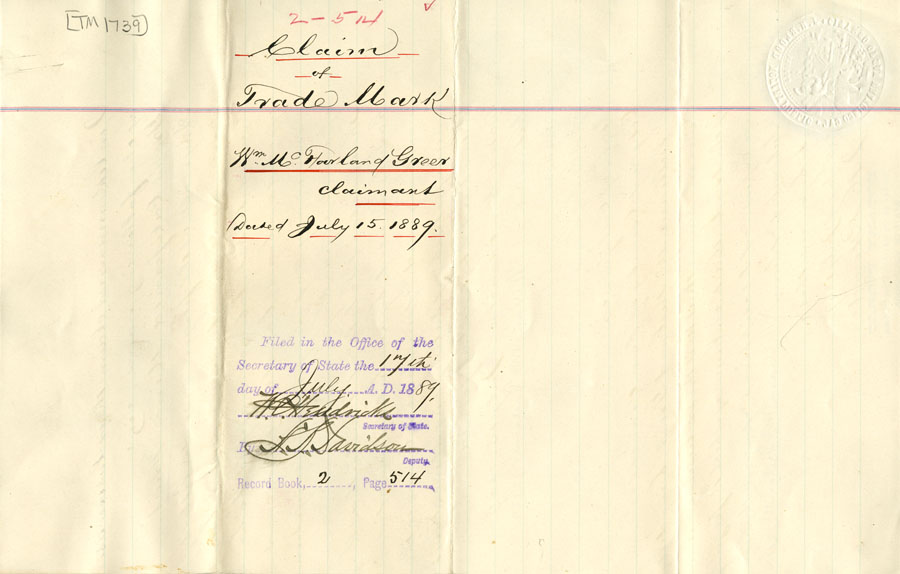 [TM 1739]
2-514
Claim
of
Trade Mark
Wm. Mc. Farland Greer
claimant
Dated July 15. 1889.
Filed in the Office of the
Secretary of State the 17th
day of July A.D. 1889,
W C Hendricks
Secretary of State.
By Davidson
Deputy.
Record Book, 2, Page 514